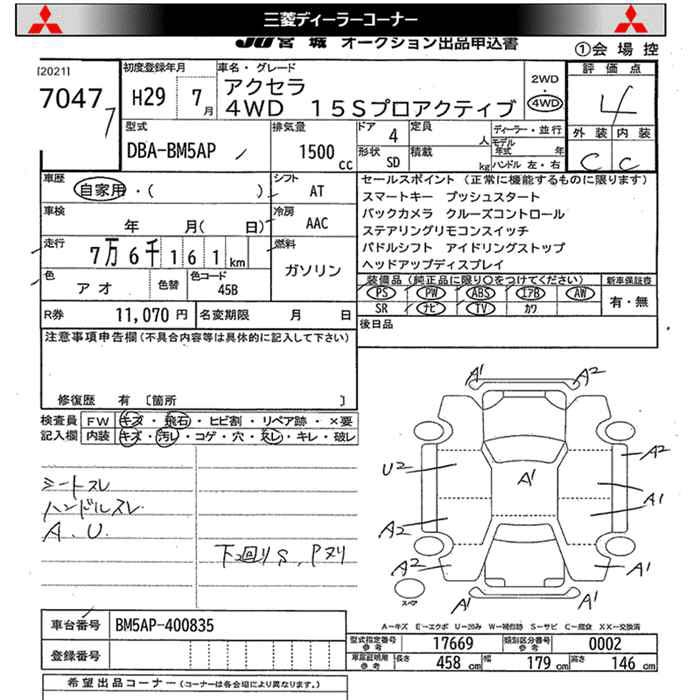 三菱ディーラーコーナー
JU宮城 オークション出品申込書
①会場控
[2021]
7047
7
初度登録年月
H29 7月
車名・グレード
アクセラ
4WD 15Sプロアクティブ
2WD
・
4WD
評価点
4
外装 内装
C C
型式
DBA-BM5AP
排気量
1500 cc
ドア 4
定員 人
形状 SD
積載 kg
ディーラー・並行
モデル年式 年
ハンドル 左・右
車歴
自家用・( )
シフト
AT
車検
年 月( 日)
冷房
AAC
走行
7万6千161km
燃料
ガソリン
色
アオ
色替
色コード
45B
セールスポイント (正常に機能するものに限ります)
スマートキー プッシュスタート
バックカメラ クルーズコントロール
ステアリングリモコンスイッチ
パドルシフト アイドリングストップ
ヘッドアップディスプレイ
装備品 (純正品に限り○をつけてください)
新車保証書
PS PW ABS エアB AW
SR ナビ TV カワ
有・無
R券 11,070 円
名変期限 月 日
後日品
注意事項申告欄 (不具合内容等は具体的に記入して下さい)
修復歴 有 〔箇所 〕
検査員記入欄
FW キズ・飛石・ヒビ割・リペア跡・×要
内装 キズ・汚レ・コゲ・穴・スレ・キレ・破レ
シートスレ
ハンドルスレ
A、U
下回りS、Pヌリ
A1
A2
U2
A1
A2
A1
A2
A2
A1
A1
スペア
A-キズ E-エクボ U-凹み W-補修跡 S-サビ C-腐食 XX-交換済
車台番号 BM5AP-400835
登録番号
型式指定番号 参考 17669
類別区分番号 参考 0002
車庫証明用 参考 長さ 458 cm 幅 179 cm 高さ 146 cm
希望出品コーナー (コーナーは各会場により異なります。)